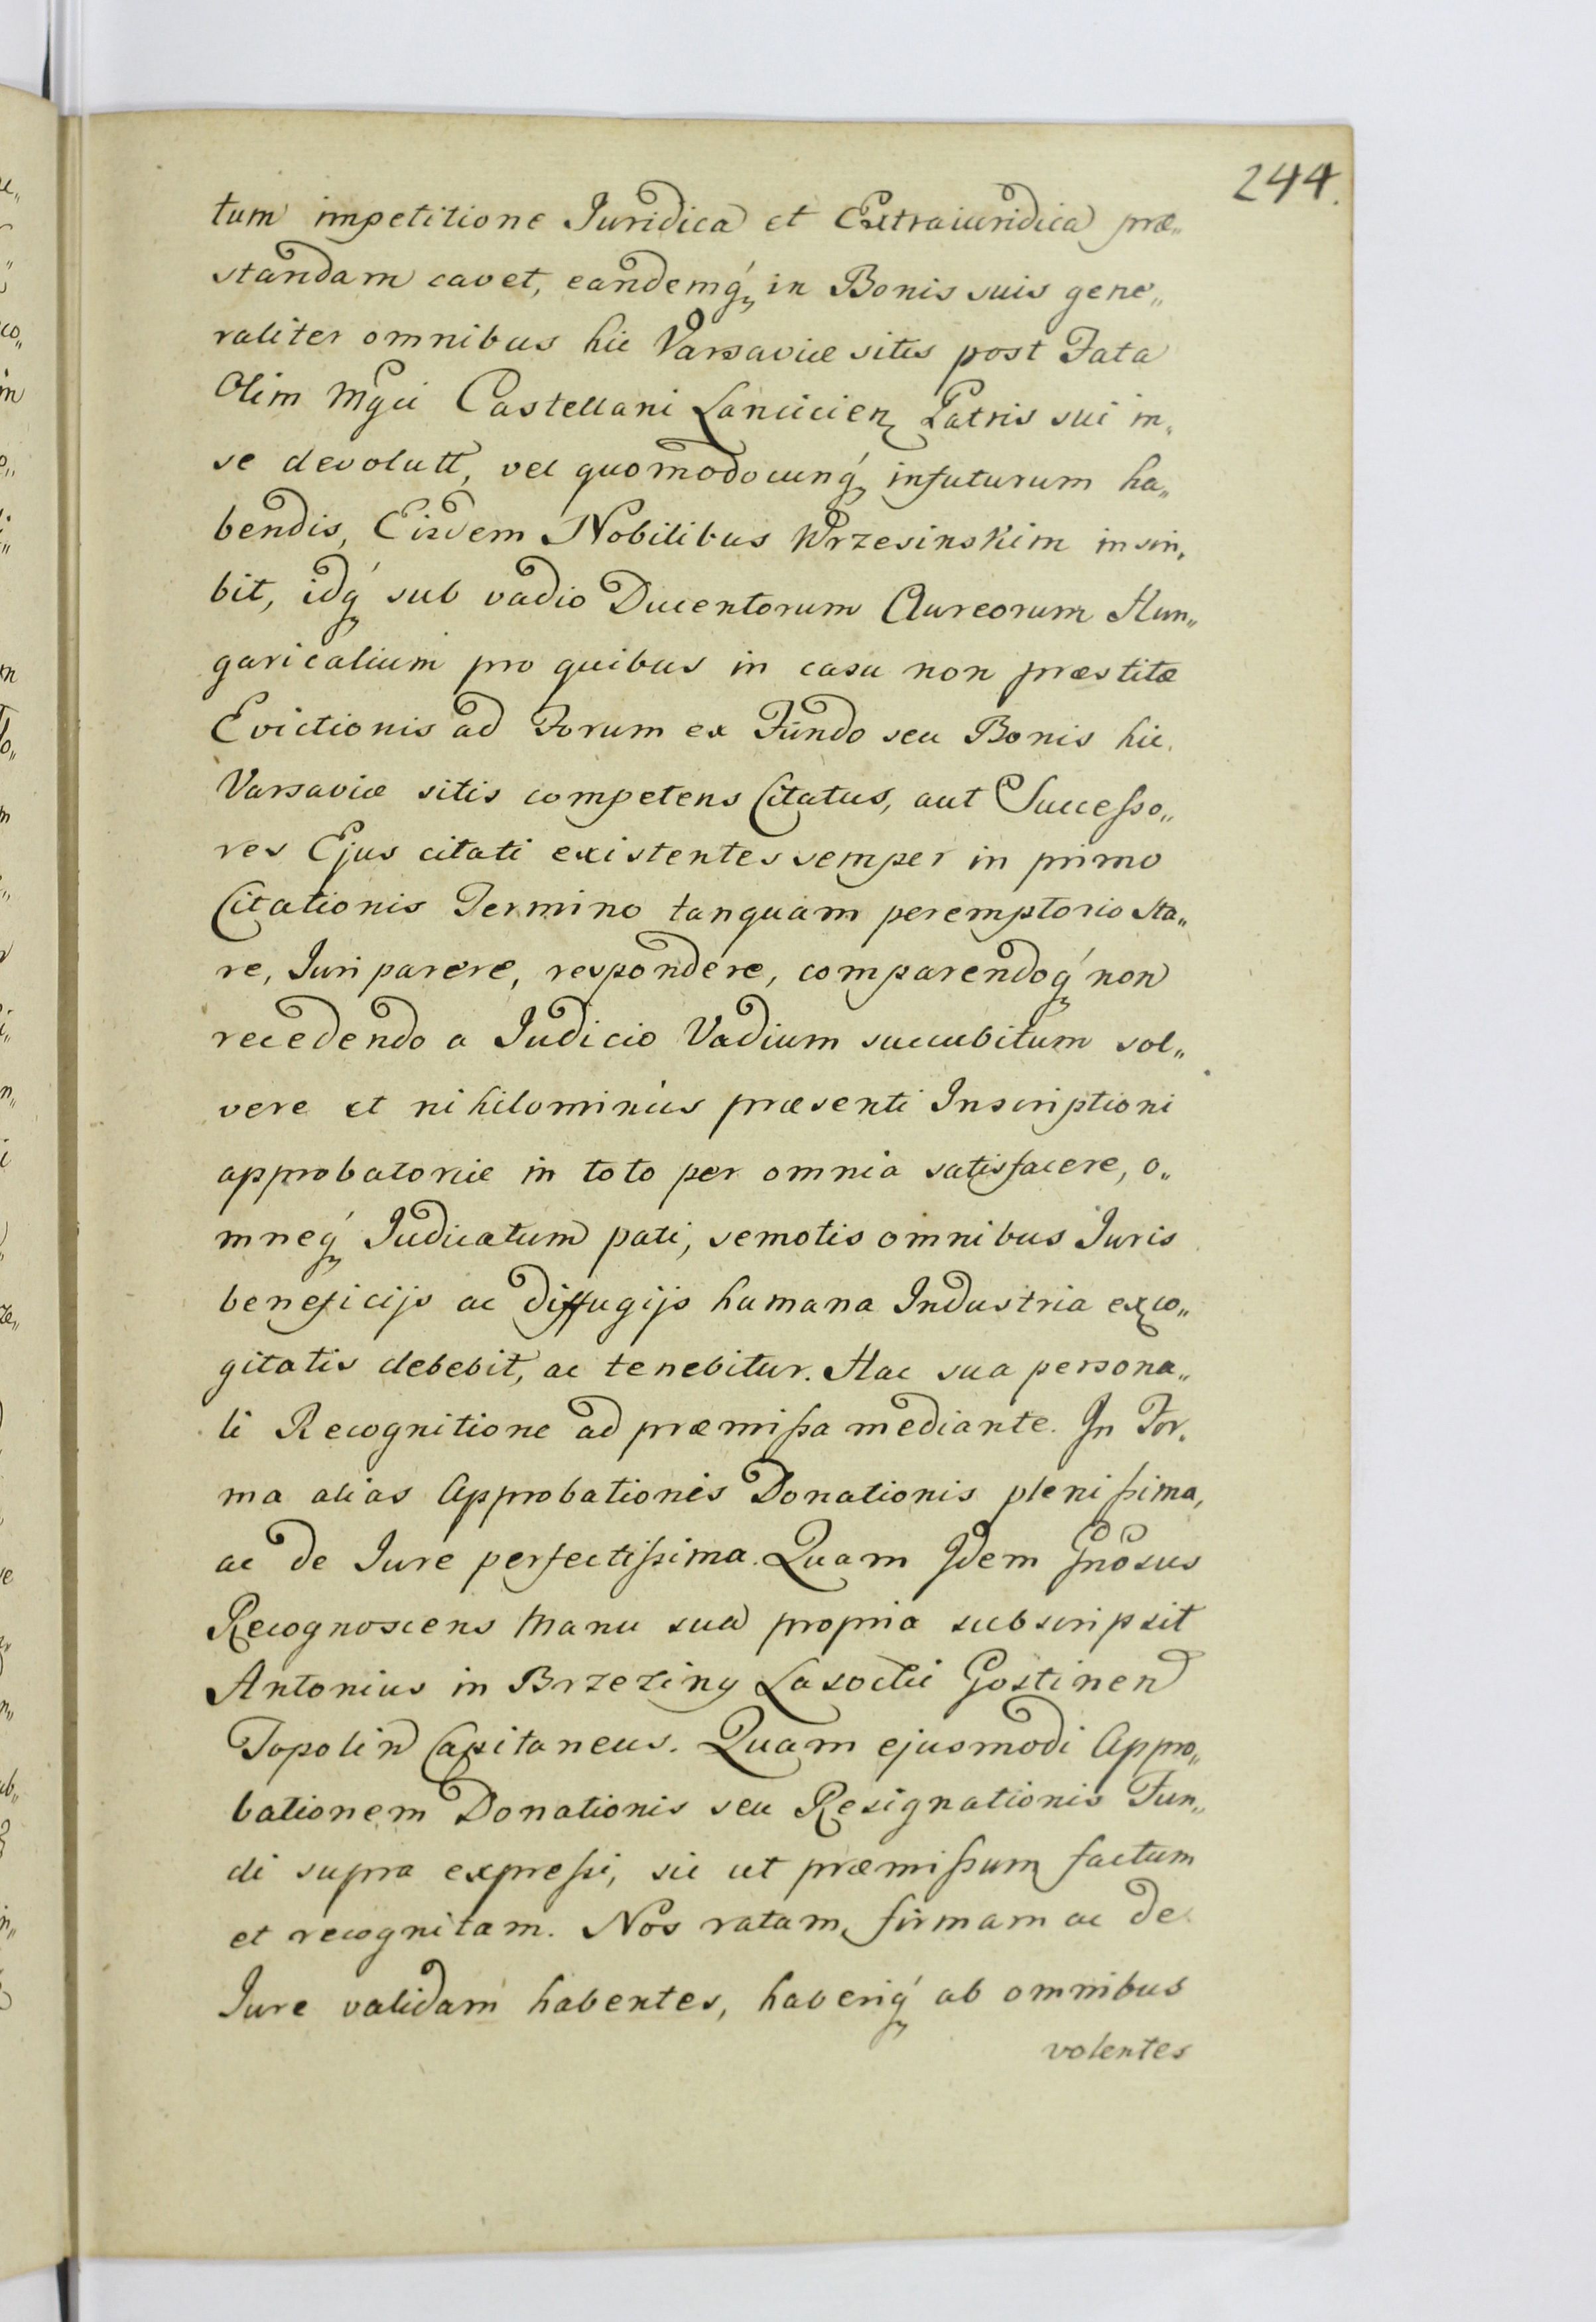 244.
tum impetitione Juridica et Extraiuridica præ„
standam cavet, eandemq́ in Bonis suis gene„
raliter omnibus hic Varsaviæ sitis post Fata
Olim Mgci Castellani Lancicien Patris sui in„
se devolutt, vel quomodocunq́ infuturum ha„
bendis, Eisdem Nobilibus Wrzesinskim inscri„
bit, idq́ sub vadio Ducentorum Aureorum Hun„
garicalium pro quibus in casu non præstitæ
Evictionis ad Forum ex Fundo seu Bonis hic
Varsaviæ sitis competens Citatus, aut Successo„
res Ejus citati existentes semper in primo
Citationis Termino tanquam peremptorio sta„
re, Juri parere, respondere, comparendoq́ non
recedendo a Judicio Vadium succubitum sol„
vere et nihilominus præsenti Inscriptioni
approbatoriæ in toto per omnia satisfacere, o„
mneq́ Judicatum pati, semotis omnibus Juris
beneficijs ac diffugijs humana Industria exco„
gitatis debebit, ac tenebitur. Hac sua persona„
li Recognitione ad præmissa mediante. In For„
ma alias Approbationis Donationis plenissima,
ac de Jure perfectissima. Quam Idem Gnosus
Recognoscens Manu sua propria subscripsit
Antonius in Brzeziny Lasocki Gostinen
Topolin Capitaneus. Quam ejusmodi Appro„
bationem Donationis seu Resignationis Fun„
di supra expressi, sic ut præmissum factum
et recognitam. Nos ratam, firmam ac de
Jure validam habentes, haberiq́ ab omnibus
volentes